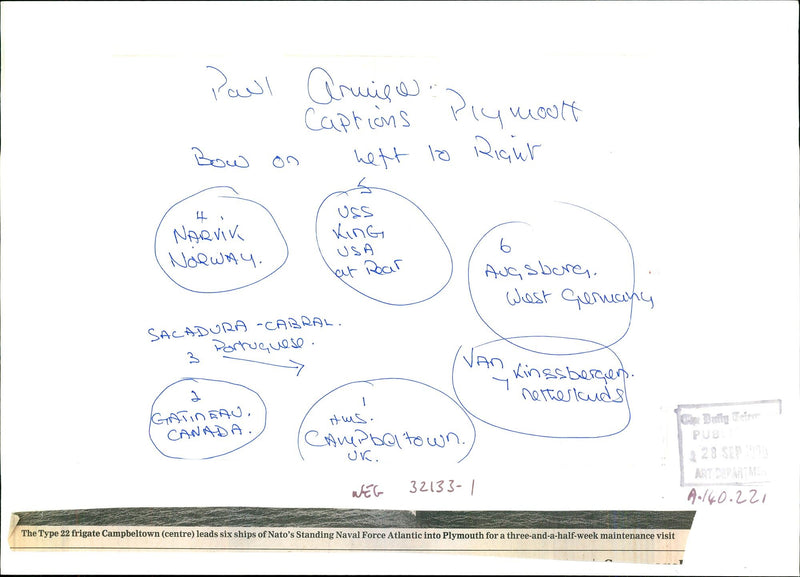 Paul Armiger
Captions Plymouth
Bow on Left to Right
4
NARVIK
NORWAY.
5
USS
KING
USA
at Rear
6
Augsburg.
West Germany
SACADURA-CABRAL.
Portuguese.
3
2
GATINEAU.
CANADA.
1
HMS.
CAMPBELTOWN.
UK.
VAN Kinssbergen.
7 netherlands
The Daily Telegraph
PUB
28 SEP
ART DEPARTMENT
NEG 32133-1
A.140.221
The Type 22 frigate Campbeltown (centre) leads six ships of Nato's Standing Naval Force Atlantic into Plymouth for a three-and-a-half-week maintenance visit